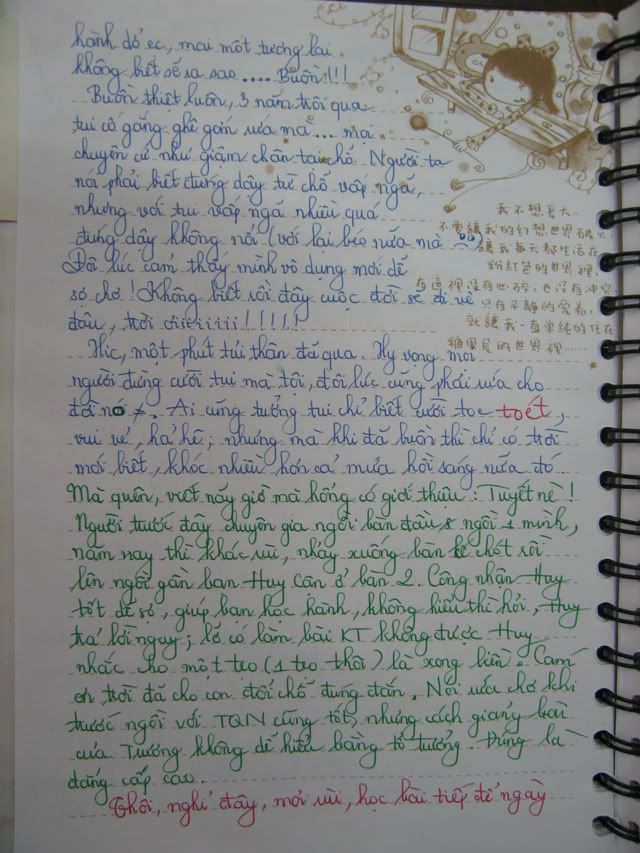 hành dở ẹc, mai một tương lai
không biết sẽ ra sao .... Buồn!!!
Buồn thiệt luôn, 3 năm trôi qua
tui cố gắng ghê gớm ứa mà ... mọi
chuyện cứ như giậm chân tại chỗ. Người ta
nói phải biết đứng dậy từ chỗ vấp ngã,
nhưng với tui vấp ngã nhiều quá
đứng dậy không nổi (với lại béo nữa mà
Đôi lúc cảm thấy mình vô dụng mới dễ
sợ chớ! Không biết rồi đây cuộc đời sẽ đi về
đâu, trời ơiiiiiii!!!!!
Hic, một phút tủi thân đã qua. Hy vọng mọi
người đừng cười tui mà tội, đôi lúc cũng phải ứa cho
đời nó ≠. Ai cũng tưởng tui chỉ biết cười toe toét,
vui vẻ, hả hê; nhưng mà khi đã buồn thì chỉ có trời
mới biết, khóc nhiều hơn cả mưa hồi sáng nữa đó.
Mà quên, viết nãy giờ mà hổng có giới thiệu: Tuyết nè!
Người trước đây chuyên gia ngồi bàn đầu & ngồi 1 mình,
năm nay thì khác rùi, nhảy xuống bàn kế chót rồi
lên ngồi gần bạn Huy Cân ở bàn 2. Công nhận Huy
tốt dễ sợ, giúp bạn học hành, không hiểu thì hỏi, Huy
trả lời ngay; lỡ có làm bài KT không được Huy
nhắc cho một tẹo (1 tẹo thôi) là xong liền. Cám
ơn trời đã cho con đổi chỗ đúng đắn. Nói ứa chớ khi
trước ngồi với TQN cũng tốt, nhưng cách giảng bài
của Tường không dễ hiểu bằng tổ tưởng. Đúng là
đẳng cấp cao.
Thôi, nghỉ đây, mỏi rùi, học bài tiếp để ngày
我不想長大..
不要讓我的幻想世界破火
讓我每天都生活在
粉紅色的世界裡.
在這裡沒有心碎,也沒有沖突
只有平靜的愛着.
就讓我一直單純的住在
糖果屋的世界裡......